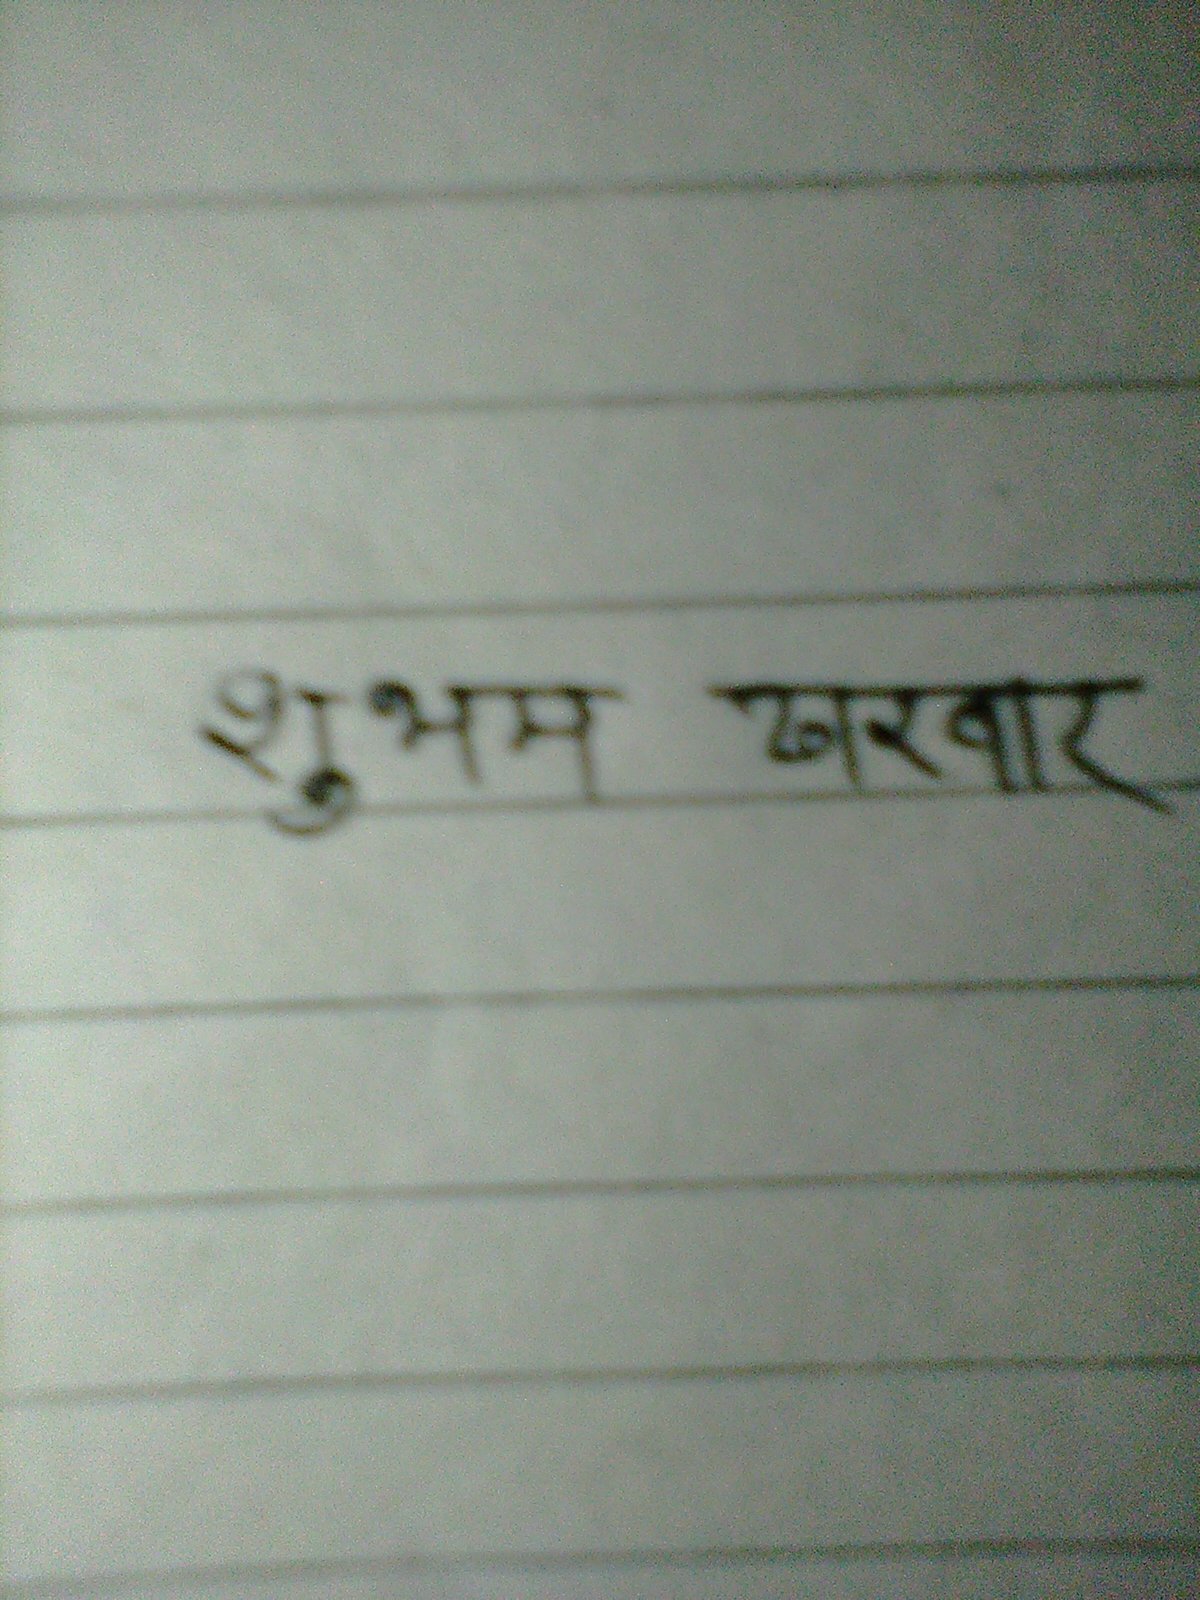 शुभम खरवार